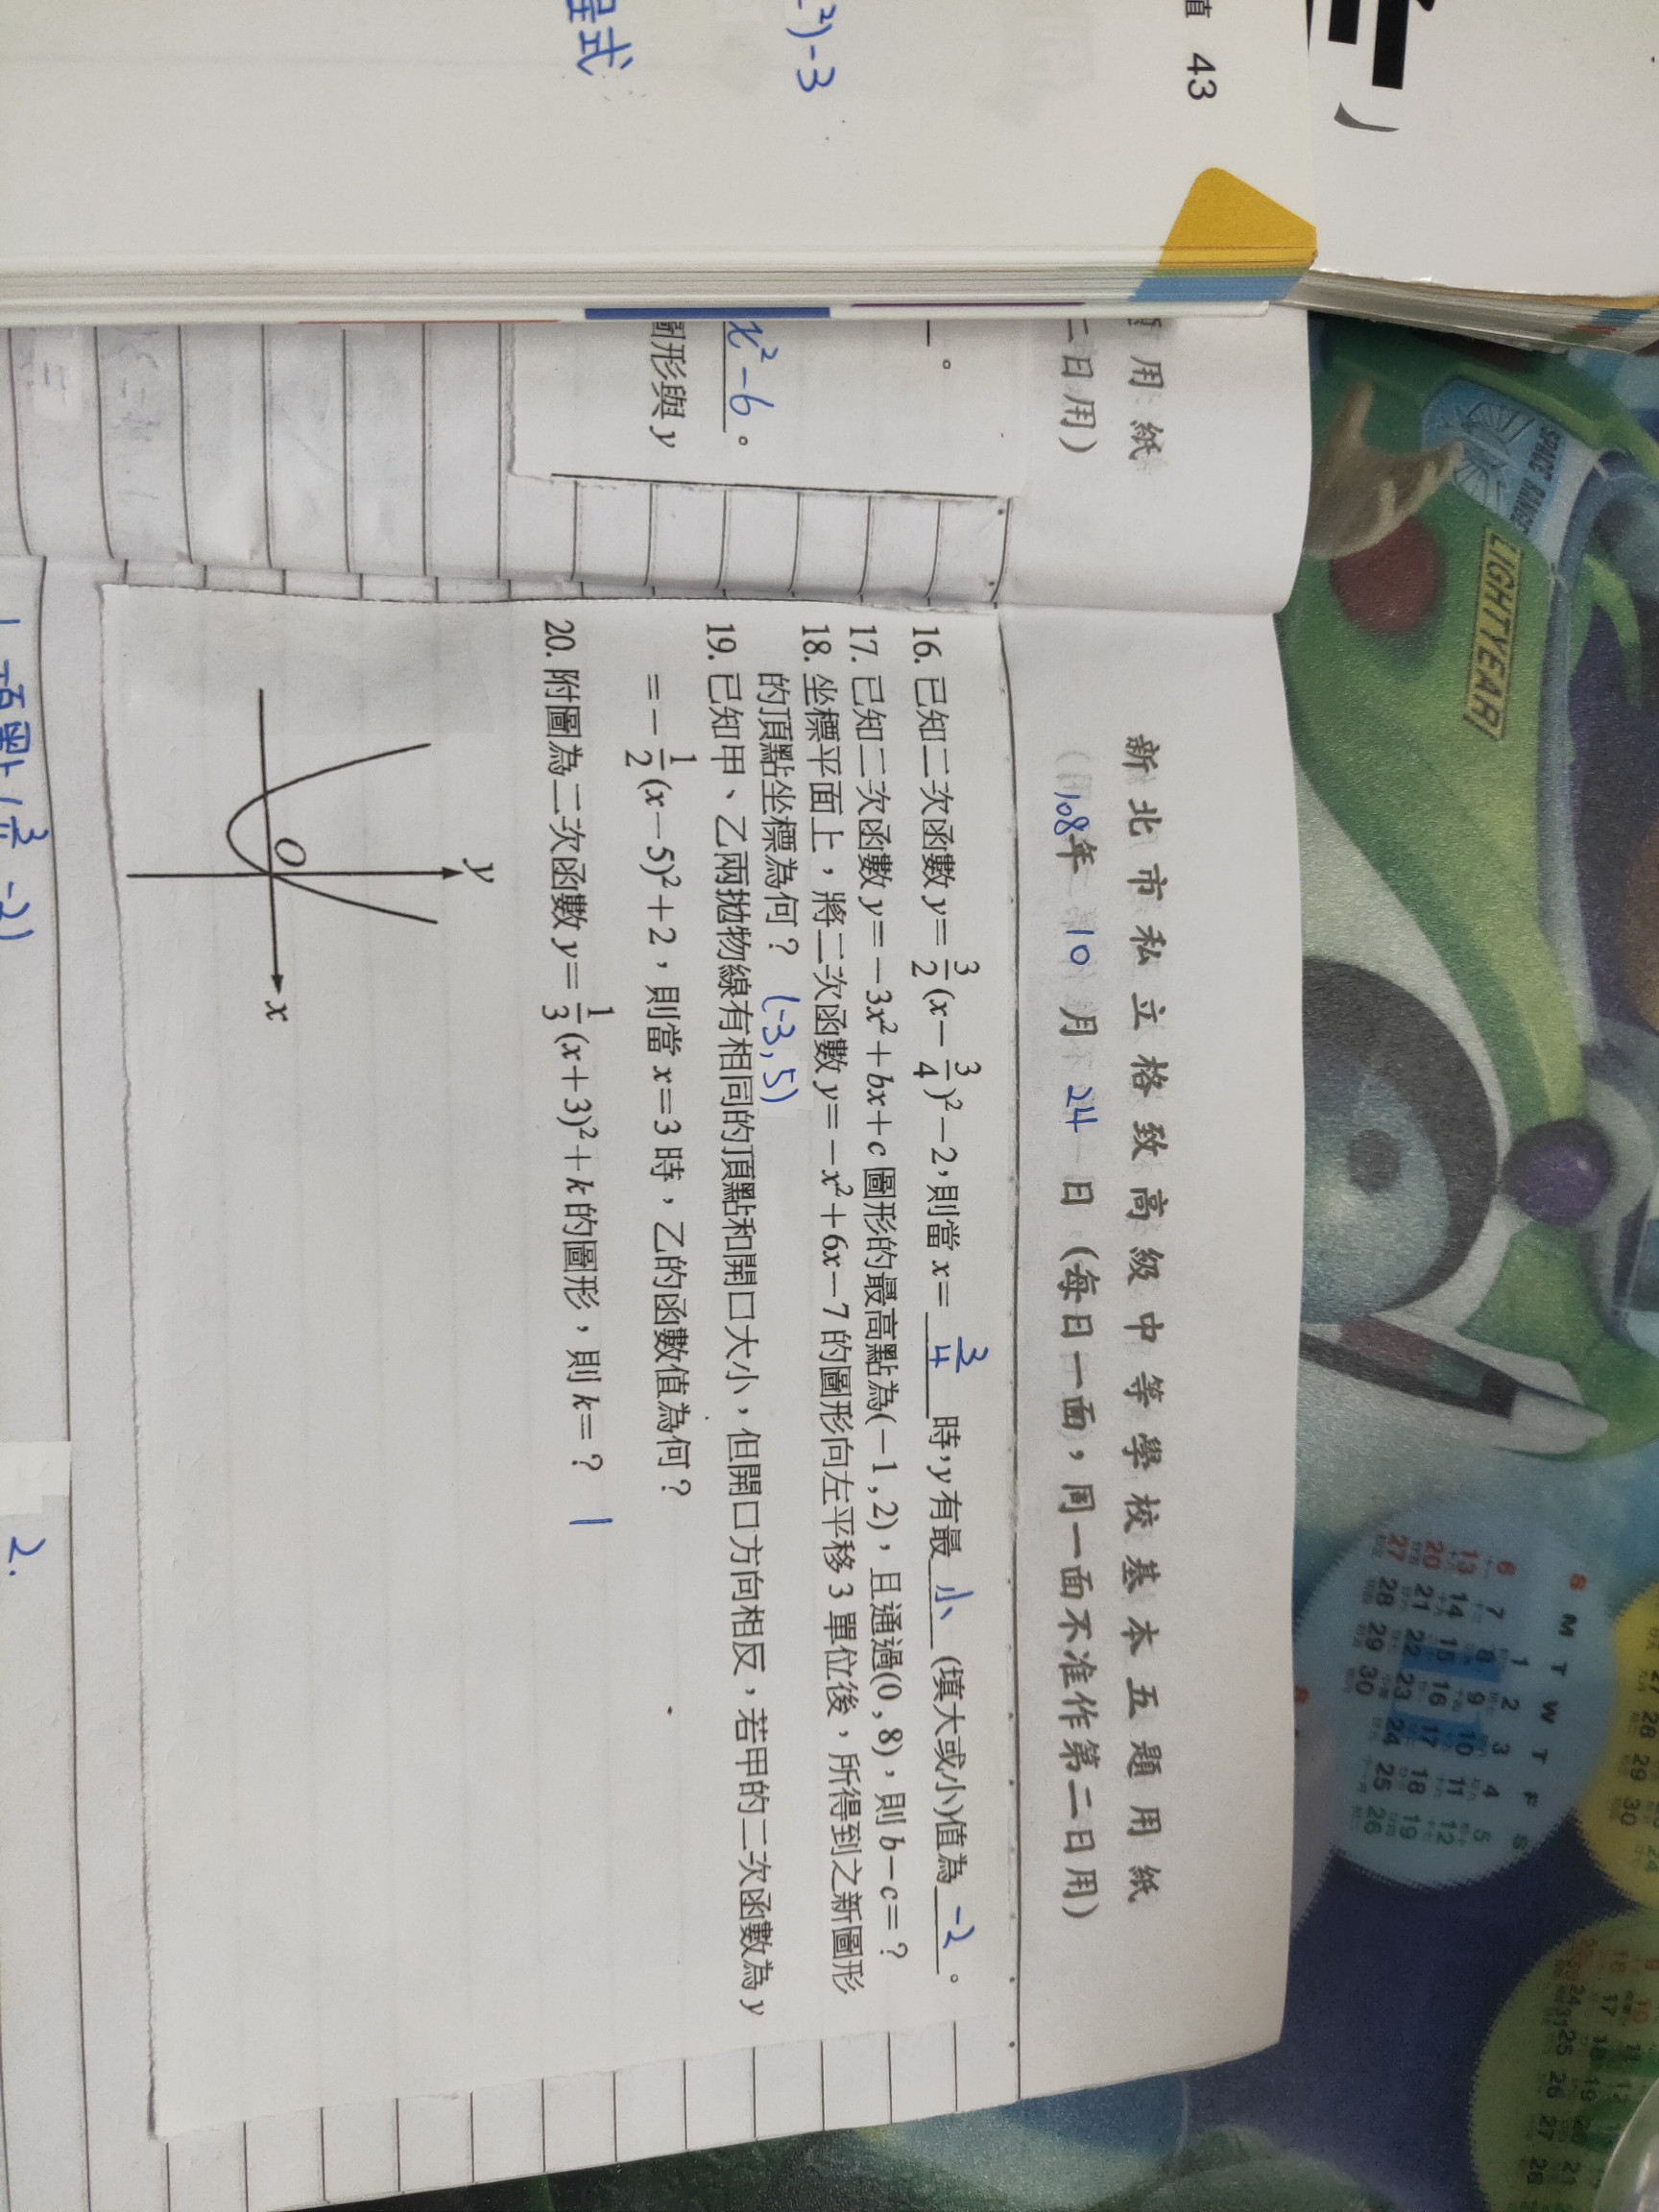 新北市私立格致高級中等學校基本五題用紙
108年10月24日(每日一面,同一面不准作第二日用)
16. 已知二次函數 y=3/2(x-3/4)²-2,則當 x= 3/4 時,y 有最 小 (填大或小)值為 -2 。
17. 已知二次函數 y=-3x²+bx+c 圖形的最高點為(-1,2),且通過(0,8),則 b-c=?
18. 坐標平面上,將二次函數 y=-x²+6x-7 的圖形向左平移 3 單位後,所得到之新圖形
的頂點坐標為何? (-3,5)
19. 已知甲、乙兩拋物線有相同的頂點和開口大小,但開口方向相反,若甲的二次函數為 y
=-1/2(x-5)²+2,則當 x=3 時,乙的函數值為何?
20. 附圖為二次函數 y=1/3(x+3)²+k 的圖形,則 k=? 1
y
O
x
用紙
二日用)
x²-6 。
圖形與 y
值 43
²)-3
程式
2.
-2)
SPACE RANGER
LIGHTYEAR
S M T W T F S
1 2 3 4 5
6 7 8 9 10 11 12
13 14 15 16 17 18 19
20 21 22 23 24 25 26
27 28 29 30